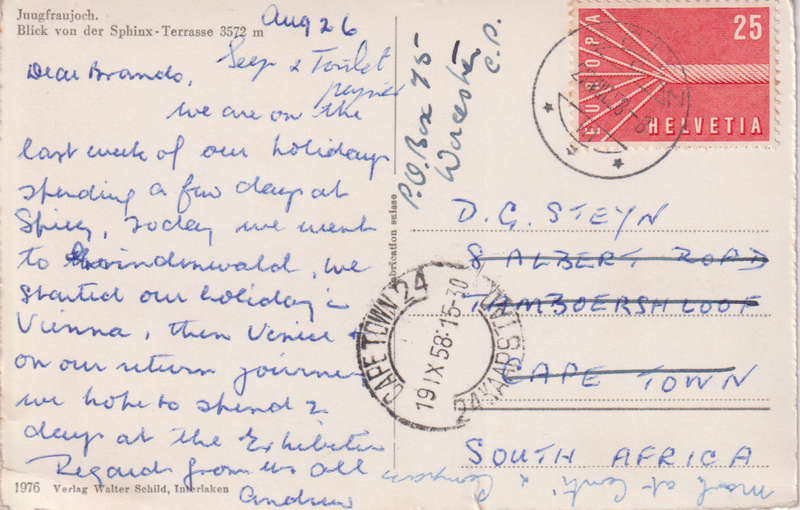 Jungfraujoch.
Blick von der Sphinx-Terrasse 3572 m
Aug 26
Dear Brando,
We are on the
last week of our holidays
spending a few days at
Spiez, today we went
to Grindenwald, we
started our holiday in
Vienna, then Venice +
on our return journey
we hope to spend 2
days at the Exhibition
Regards from us all
Andrew
1976 Verlag Walter Schild, Interlaken
Fabrication suisse
P.O. Box 75
Worcester
C.P.
EUROPA
25
HELVETIA
D. G. STEYN
8 ALBERT ROAD
TAMBOERSKLOOF
CAPE TOWN
SOUTH AFRICA
CAPE TOWN 24
19 IX 58·15-30
KAAPSTAD 24